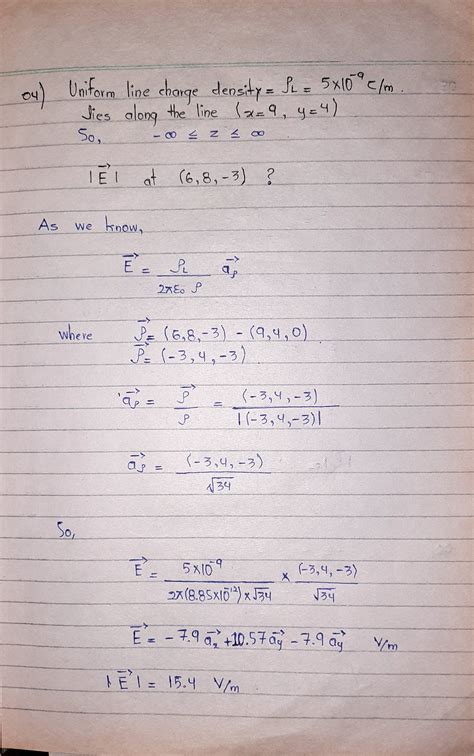 04) Uniform line charge density = ρL = 5×10⁻⁹ C/m.
lies along the line (x=9, y=4)
So, -∞ ≤ z ≤ ∞
|E⃗| at (6,8,-3) ?
As we know,
E⃗ = ρL / 2πε₀ ρ a⃗ρ
where ρ⃗ = (6,8,-3) - (9,4,0)
ρ⃗ = (-3,4,-3)
a⃗ρ = ρ⃗ / ρ = (-3,4,-3) / |(-3,4,-3)|
a⃗ρ = (-3,4,-3) / √34
So,
E⃗ = 5×10⁻⁹ / 2π(8.85×10⁻¹²)×√34 × (-3,4,-3) / √34
E⃗ = -7.9 a⃗x + 10.57 a⃗y - 7.9 a⃗y V/m
|E⃗| = 15.4 V/m